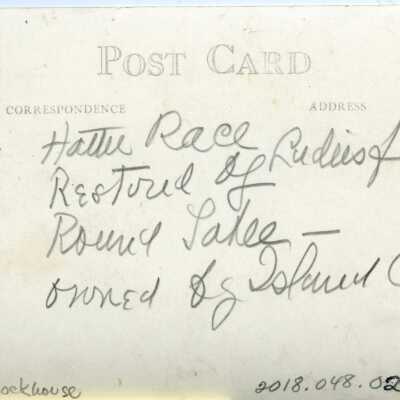 POST CARD
CORRESPONDENCE ADDRESS
Hattie Race
Restored by Ladies of
Round Table —
owned by Island C
ockhouse 2018.048.02